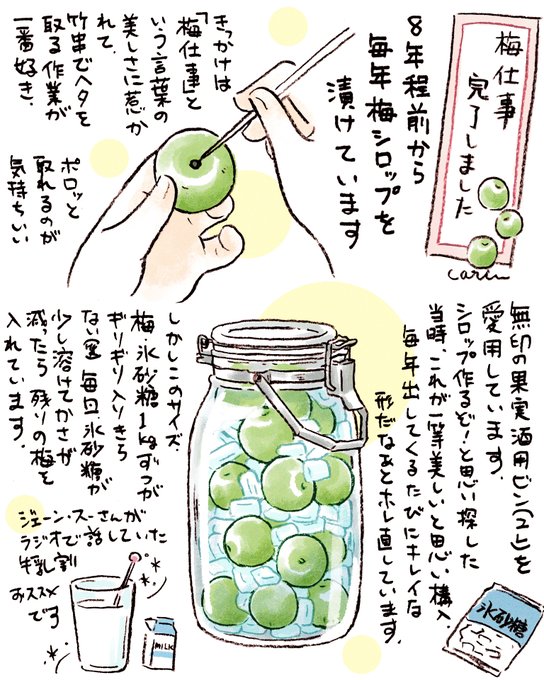 梅仕事
完了しました
Carin
8年程前から
毎年梅シロップを
漬けています
きっかけは
「梅仕事」と
いう言葉の
美しさに惹か
れて。
竹串でヘタを
取る作業が
一番好き。
ポロッと
取れるのが
気持ちいい
無印の果実酒用ビン(2L)を
愛用しています。
シロップ作るぞ!と思い探した
当時、これが一等美しいと思い購入。
毎年出してくるたびにキレイな
形だなあとホレ直しています。
しかしこのサイズ
梅・氷砂糖1kgずつが
ギリギリ入りきら
ない 毎回、氷砂糖が
少し溶けてかさが
減ったら残りの梅を
入れています。
氷砂糖
ジェーン・スーさんが
ラジオで話していた
牛乳割
おススメ
です
MILK